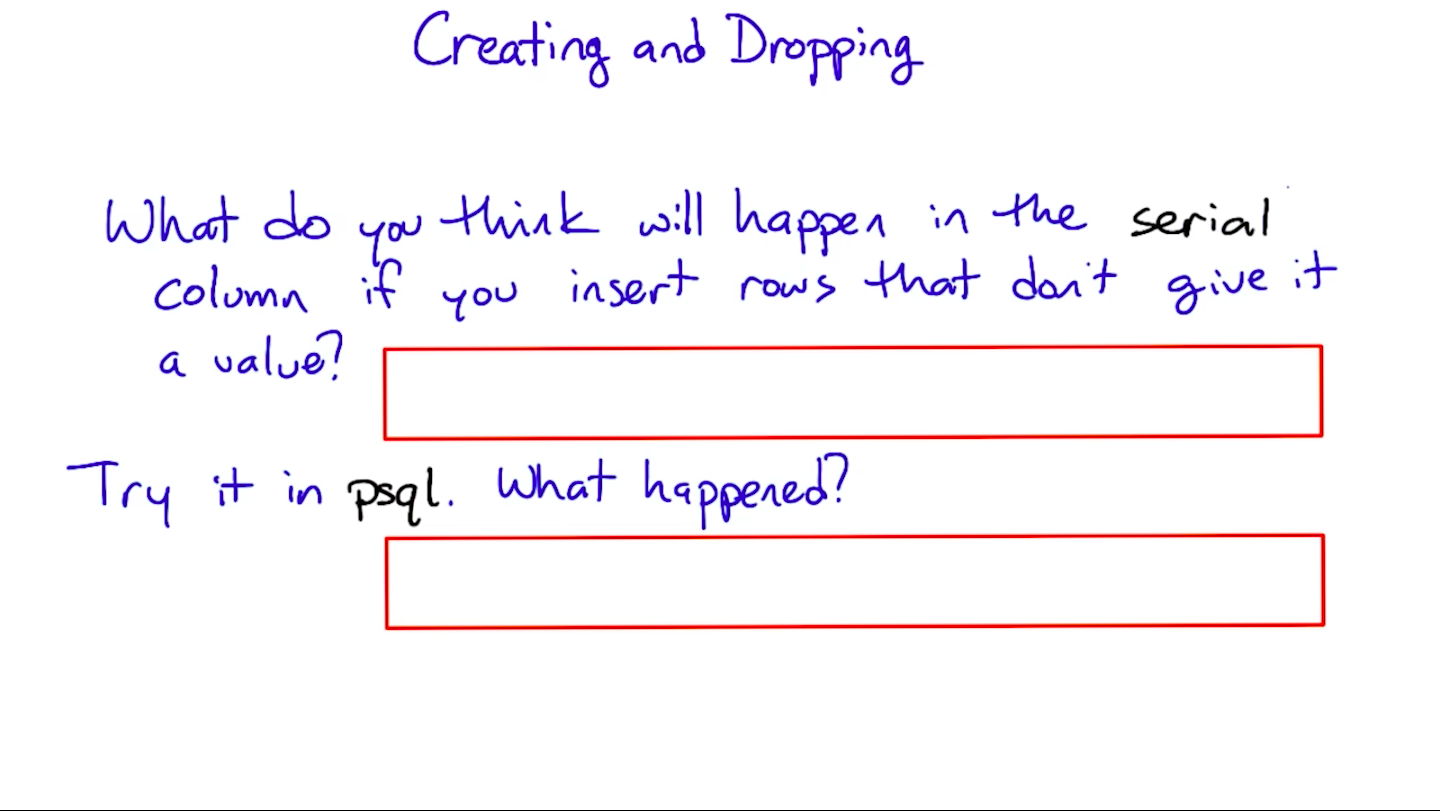 Creating and Dropping
What do you think will happen in the serial
column if you insert rows that don't give it
a value?
Try it in psql. What happened?